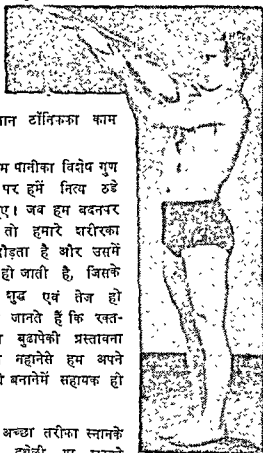 ान टॉनिकका काम
म पानीका विशेष गुण
पर हमें नित्य ठडे
ए। जब हम बदनपर
तो हमारे शरीरका
दौड़ता है और उसमें
हो जाती है, जिसके
शुद्ध एवं तेज हो
जानते हैं कि रक्त-
बुढापेकी प्रस्तावना
नहानेसे हम अपने
बनानेमें सहायक ही
अच्छा तरीका स्नानके